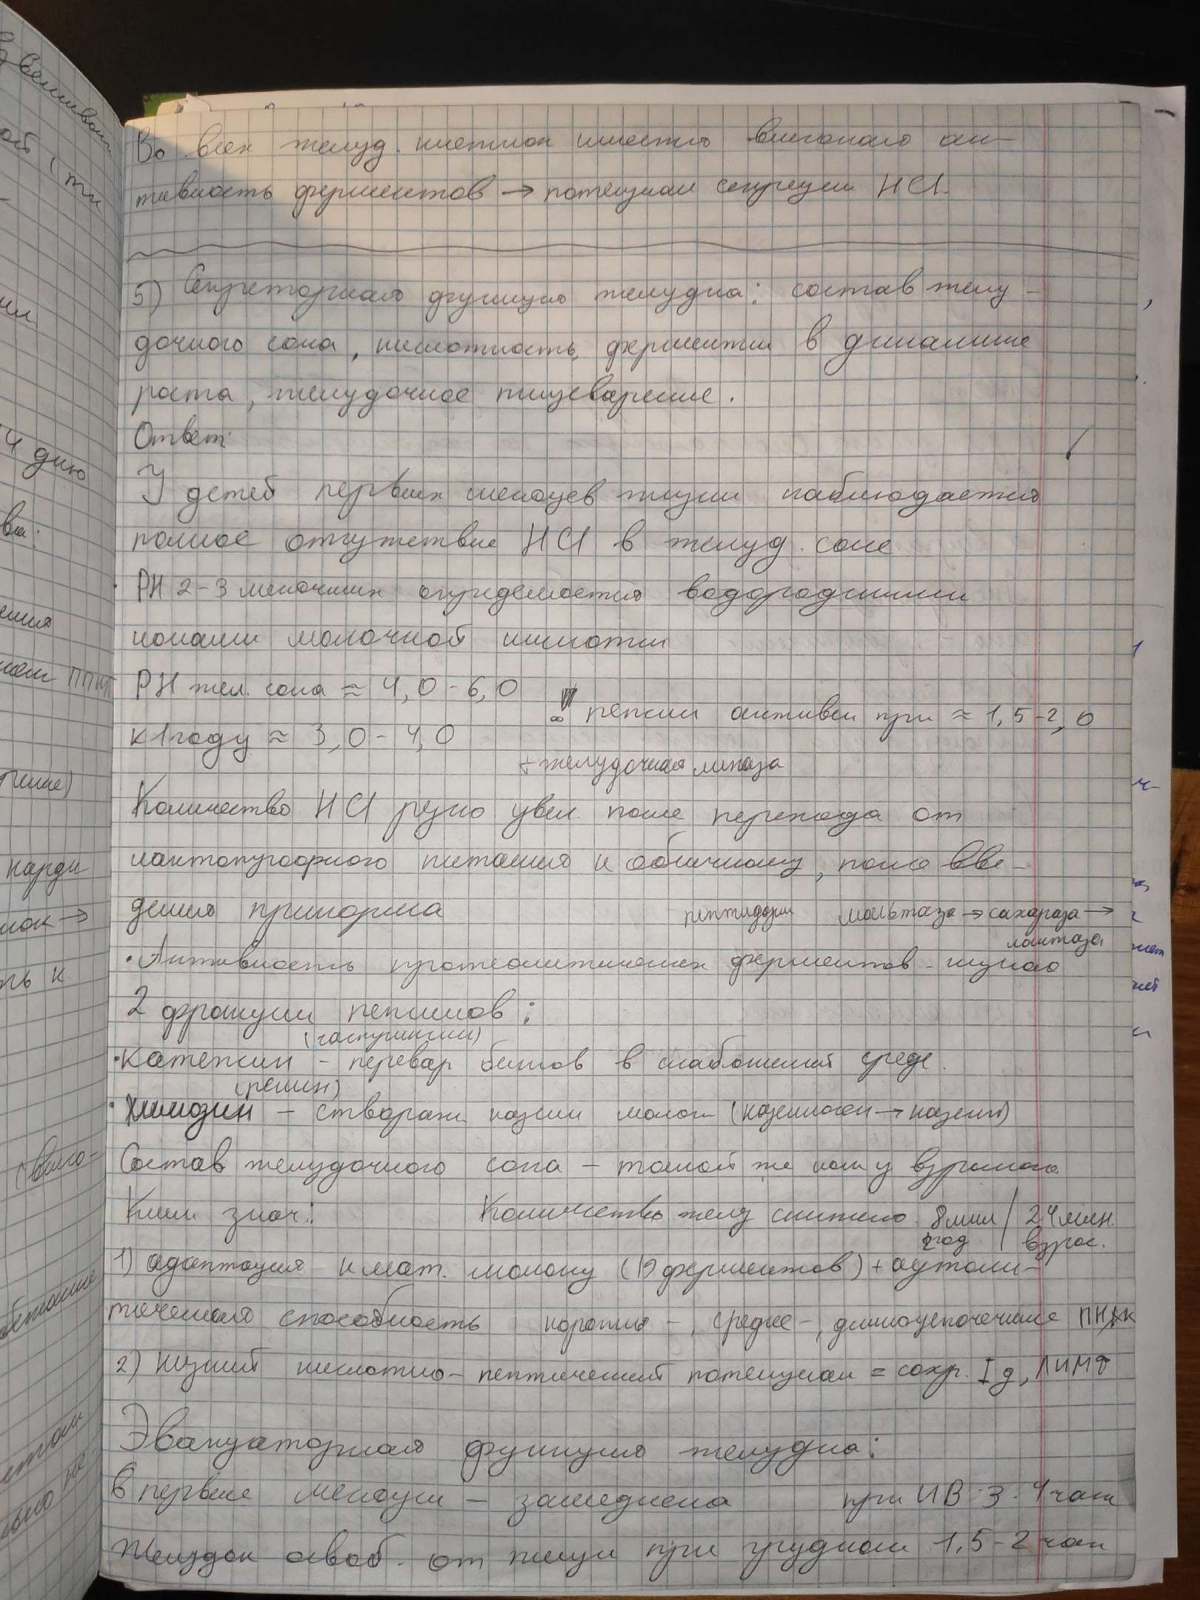 Во всех желуд. клетках имеется высокая ак-
тивность ферментов → потенциал секреции HCl.
5) Секреторная функция желудка: состав желу-
дочного сока, кислотность, ферменты в динамике
роста, желудочное пищеварение.
Ответ:
У детей первых месяцев жизни наблюдается
полное отсутствие HCl в желуд. соке
• PH 2-3 месячных определяется водородными
ионами молочной кислоты
PH жел. сока ≈ 4,0-6,0
!! пепсин активен при ≈ 1,5-2,0
к 1 году ≈ 3,0-4,0
+ желудочная липаза
Количество HCl резко увел. после перехода от
лактотрофного питания к обычному, после вве-
дения прикорма
пептидазы мальтаза → сахараза →
лактаза
• Активность протеолитических ферментов - низкая
2 фракции пепсинов:
(гастриксин)
• катепсин - перевар белков в слабокислой среде.
(ренин)
• Химозин - створаж. казеин молока (казеиноген → казеин)
Состав желудочного сока - такой же как у взрослого
Клин знач: Количество желез снижено 8 млн / 24 млн.
2 год взрос.
1) адаптация к мат. молоку (19 ферментов) + аутоли-
тическая способность коротко-, средне-, длинноцепочечные ПНЖК
2) низкий кислотно-пептический потенциал = сохр. Ig,
Эвакуаторная функция желудка:
в первые месяцы - замедлена при ИВ 3-4 час
Желудок освоб. от пищи при грудном 1,5-2 час
4 дню